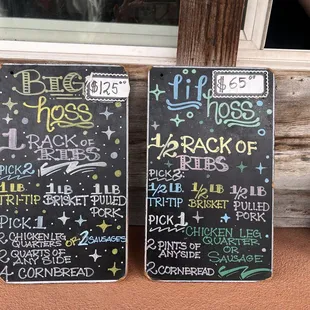 BIG $125
hoss
1 RACK OF
RIBS
PICK 2
1 LB 1 LB 1 LB
TRI-TIP BRISKET PULLED
PORK
PICK 1
2 CHICKEN LEG
QUARTERS OR 2 SAUSAGES
2 QUARTS OF
ANY SIDE
4 CORNBREAD
lil $65
hoss
1/2 RACK OF
RIBS
PICK 2
1/2 LB. 1/2 LB 1/2 LB
TRI-TIP BRISKET PULLED
PORK
PICK 1
CHICKEN LEG
QUARTER
OR
SAUSAGE
2 PINTS OF
ANY SIDE
2 CORNBREAD